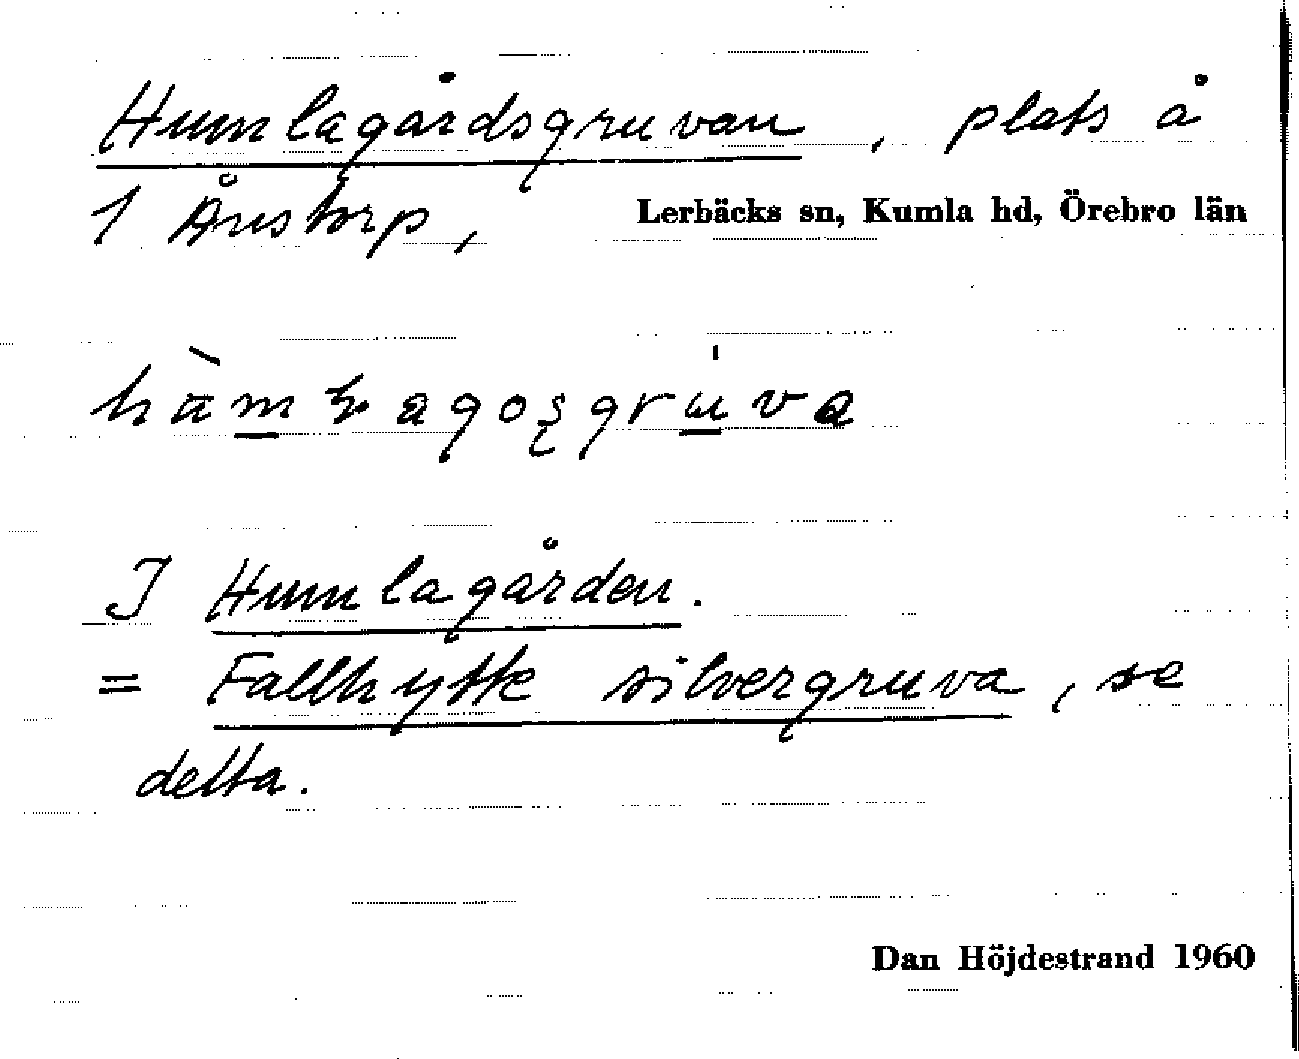 Humlagårdsgruvan, plats å
1 Ånstorp, Lerbäcks sn, Kumla hd, Örebro län
I Humlagården.
= Fallhytte silvergruva, se
detta.
Dan Höjdestrand 1960